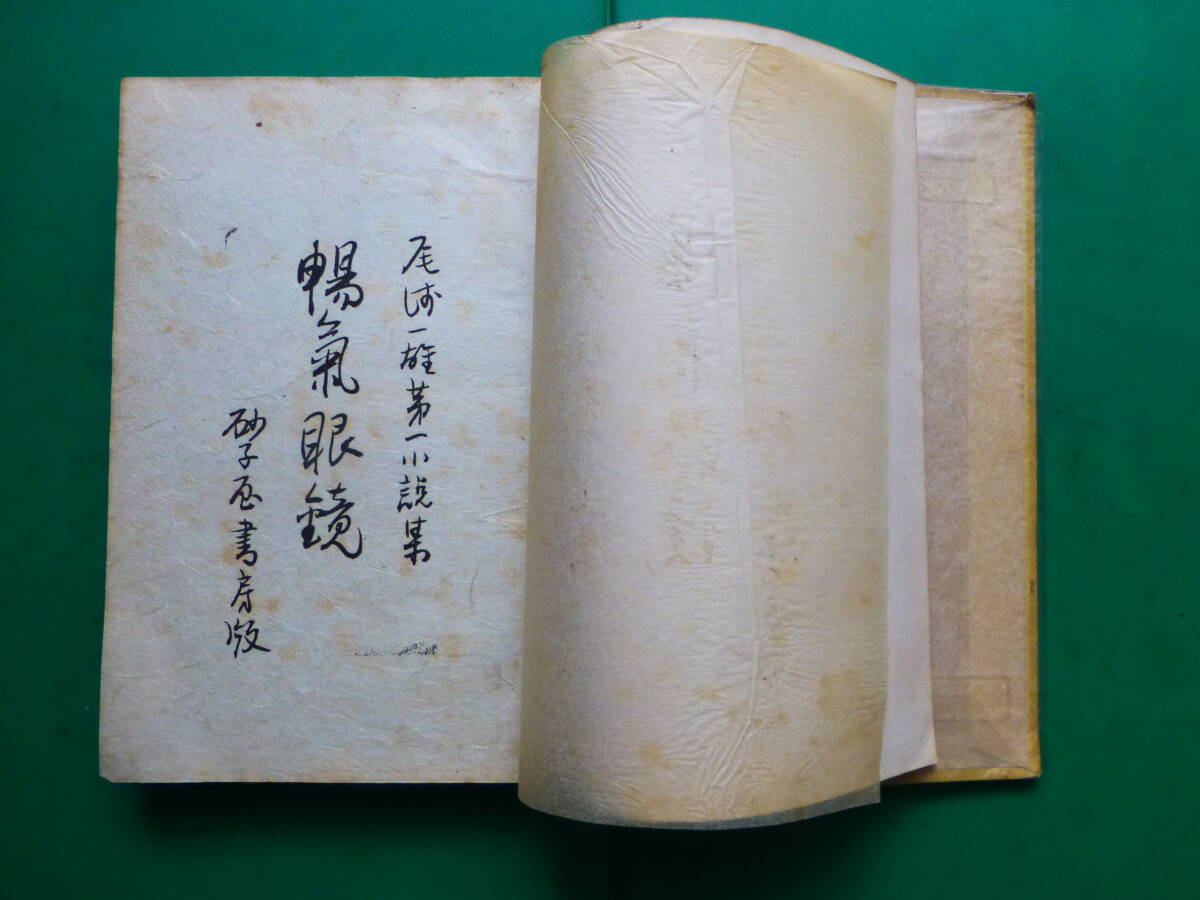 尾崎一雄第一小説集
暢氣眼鏡
砂子屋書房版